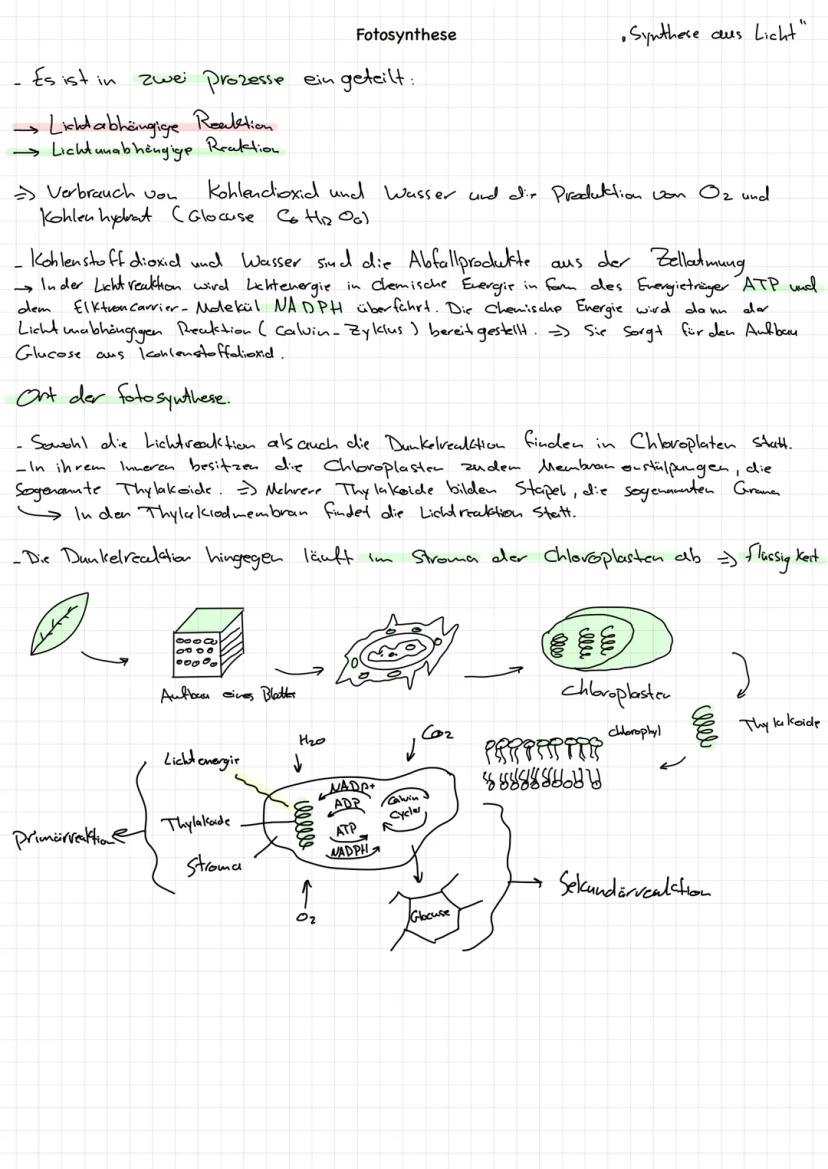 Fotosynthese
„Synthese aus Licht"
- Es ist in zwei Prozesse eingeteilt:
→ Lichtabhängige Reaktion
→ Lichtunabhängige Reaktion
⇒ Verbrauch von Kohlendioxid und Wasser und die Produktion von O2 und
Kohlenhydrat (Glocuse C6 H12 O6)
- Kohlenstoffdioxid und Wasser sind die Abfallprodukte aus der Zellatmung
→ In der Lichtreaktion wird Lichtenergie in chemische Energie in form des Energieträger ATP und
dem Elktroncarrier-Molekül NADPH überführt. Die Chemische Energie wird dann der
Lichtunabhängigen Reaktion (Calvin-Zyklus) bereitgestellt. ⇒ Sie sorgt für den Aufbau
Glucose aus Kohlenstoffdioxid.
Ort der fotosynthese.
- Sowohl die Lichtreaktion als auch die Dunkelreaktion finden in Chloroplaten statt.
- In ihrem Inneren besitzen die Chloroplasten zudem Membran, die
sogenannte Thylakoide. ⇒ Mehrere Thylakoide bilden Stapel, die sogenannten Grana
→ In den Thylakiodmembran findet die Lichtreaktion statt.
- Die Dunkelreaktion hingegen läuft im Stroma der Chloroplasten ab ⇒ flüssigkeit
Aufbau eines Blatter
Chloroplasten
Thylakoide
chlorophyl
H2O
CO2
Lichtenergie
NADP+
ADP
Calvin
Cyclus
Thylakoide
ATP
Primärreaktion
NADPH
Stroma
Sekundärreaktion
Glocuse
O2